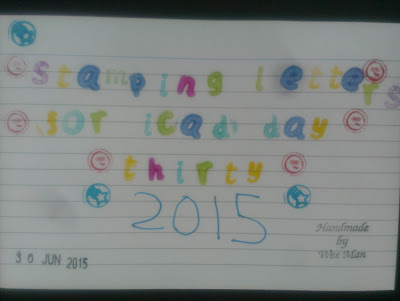 stamping letters
for icad day
thirty
2015
Handmade
by
Wee Man
30 JUN 2015